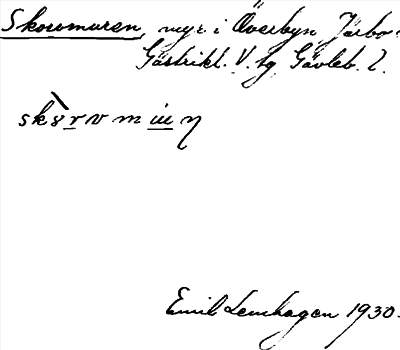 Skorvmuren, myr i Överbyn Järbo
Gästrikl. V. tg Gävleb. l.
Emil Lenhagen 1930.